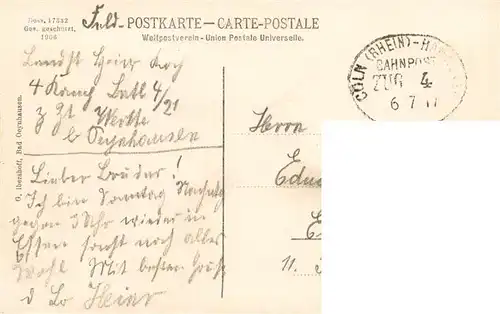 Dess. 17532
Ges. geschützt,
1906
Feld-POSTKARTE — CARTE-POSTALE
Weltpostverein - Union Postale Universelle.
CÖLN (RHEIN)-HA
BAHNPOST
ZUG 4
6 7 17
Landst Heinr Koch
4 Komp Batl 4/21
z Zt Werste
b Oeynhausen
G. Ibershoff, Bad Oeynhausen.
Lieber Bruder!
Ich bin Sonntag Nachmttg
gegen 3 Uhr wieder in
Essen sonst noch alles
Wohl Mit besten Gruß
d Br Heinr
Herrn
Edu
E
11.